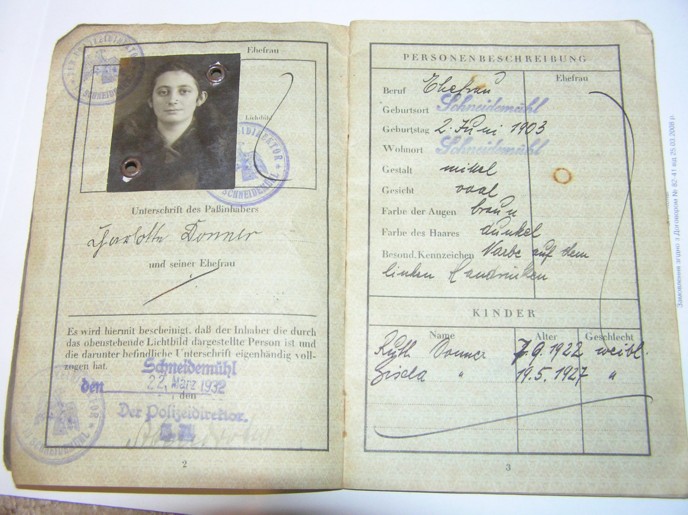 Ehefrau
Lichtbild
Unterschrift des Paßinhabers
Charlotte Donner
und seiner Ehefrau
Es wird hiermit bescheinigt, daß der Inhaber die durch
das obenstehende Lichtbild dargestellte Person ist und
die darunter befindliche Unterschrift eigenhändig voll-
zogen hat.
Schneidemühl
den 22. März 1932
, den
Der Polizeidirektor.
2
PERSONENBESCHREIBUNG
Ehefrau
Beruf Ehefrau
Geburtsort Schneidemühl
Geburtstag 2. Juni 1903
Wohnort Schneidemühl
Gestalt mittel
Gesicht oval
Farbe der Augen braun
Farbe des Haares dunkel
Besond. Kennzeichen Narbe auf dem
linken Handrücken
KINDER
Name Alter Geschlecht
Ruth Donner 7.9.1922 weibl.
Gisela " 19.5.1927 "
3
Замовлення згідно з Договором № 82-41 від 25.03.2008 р.